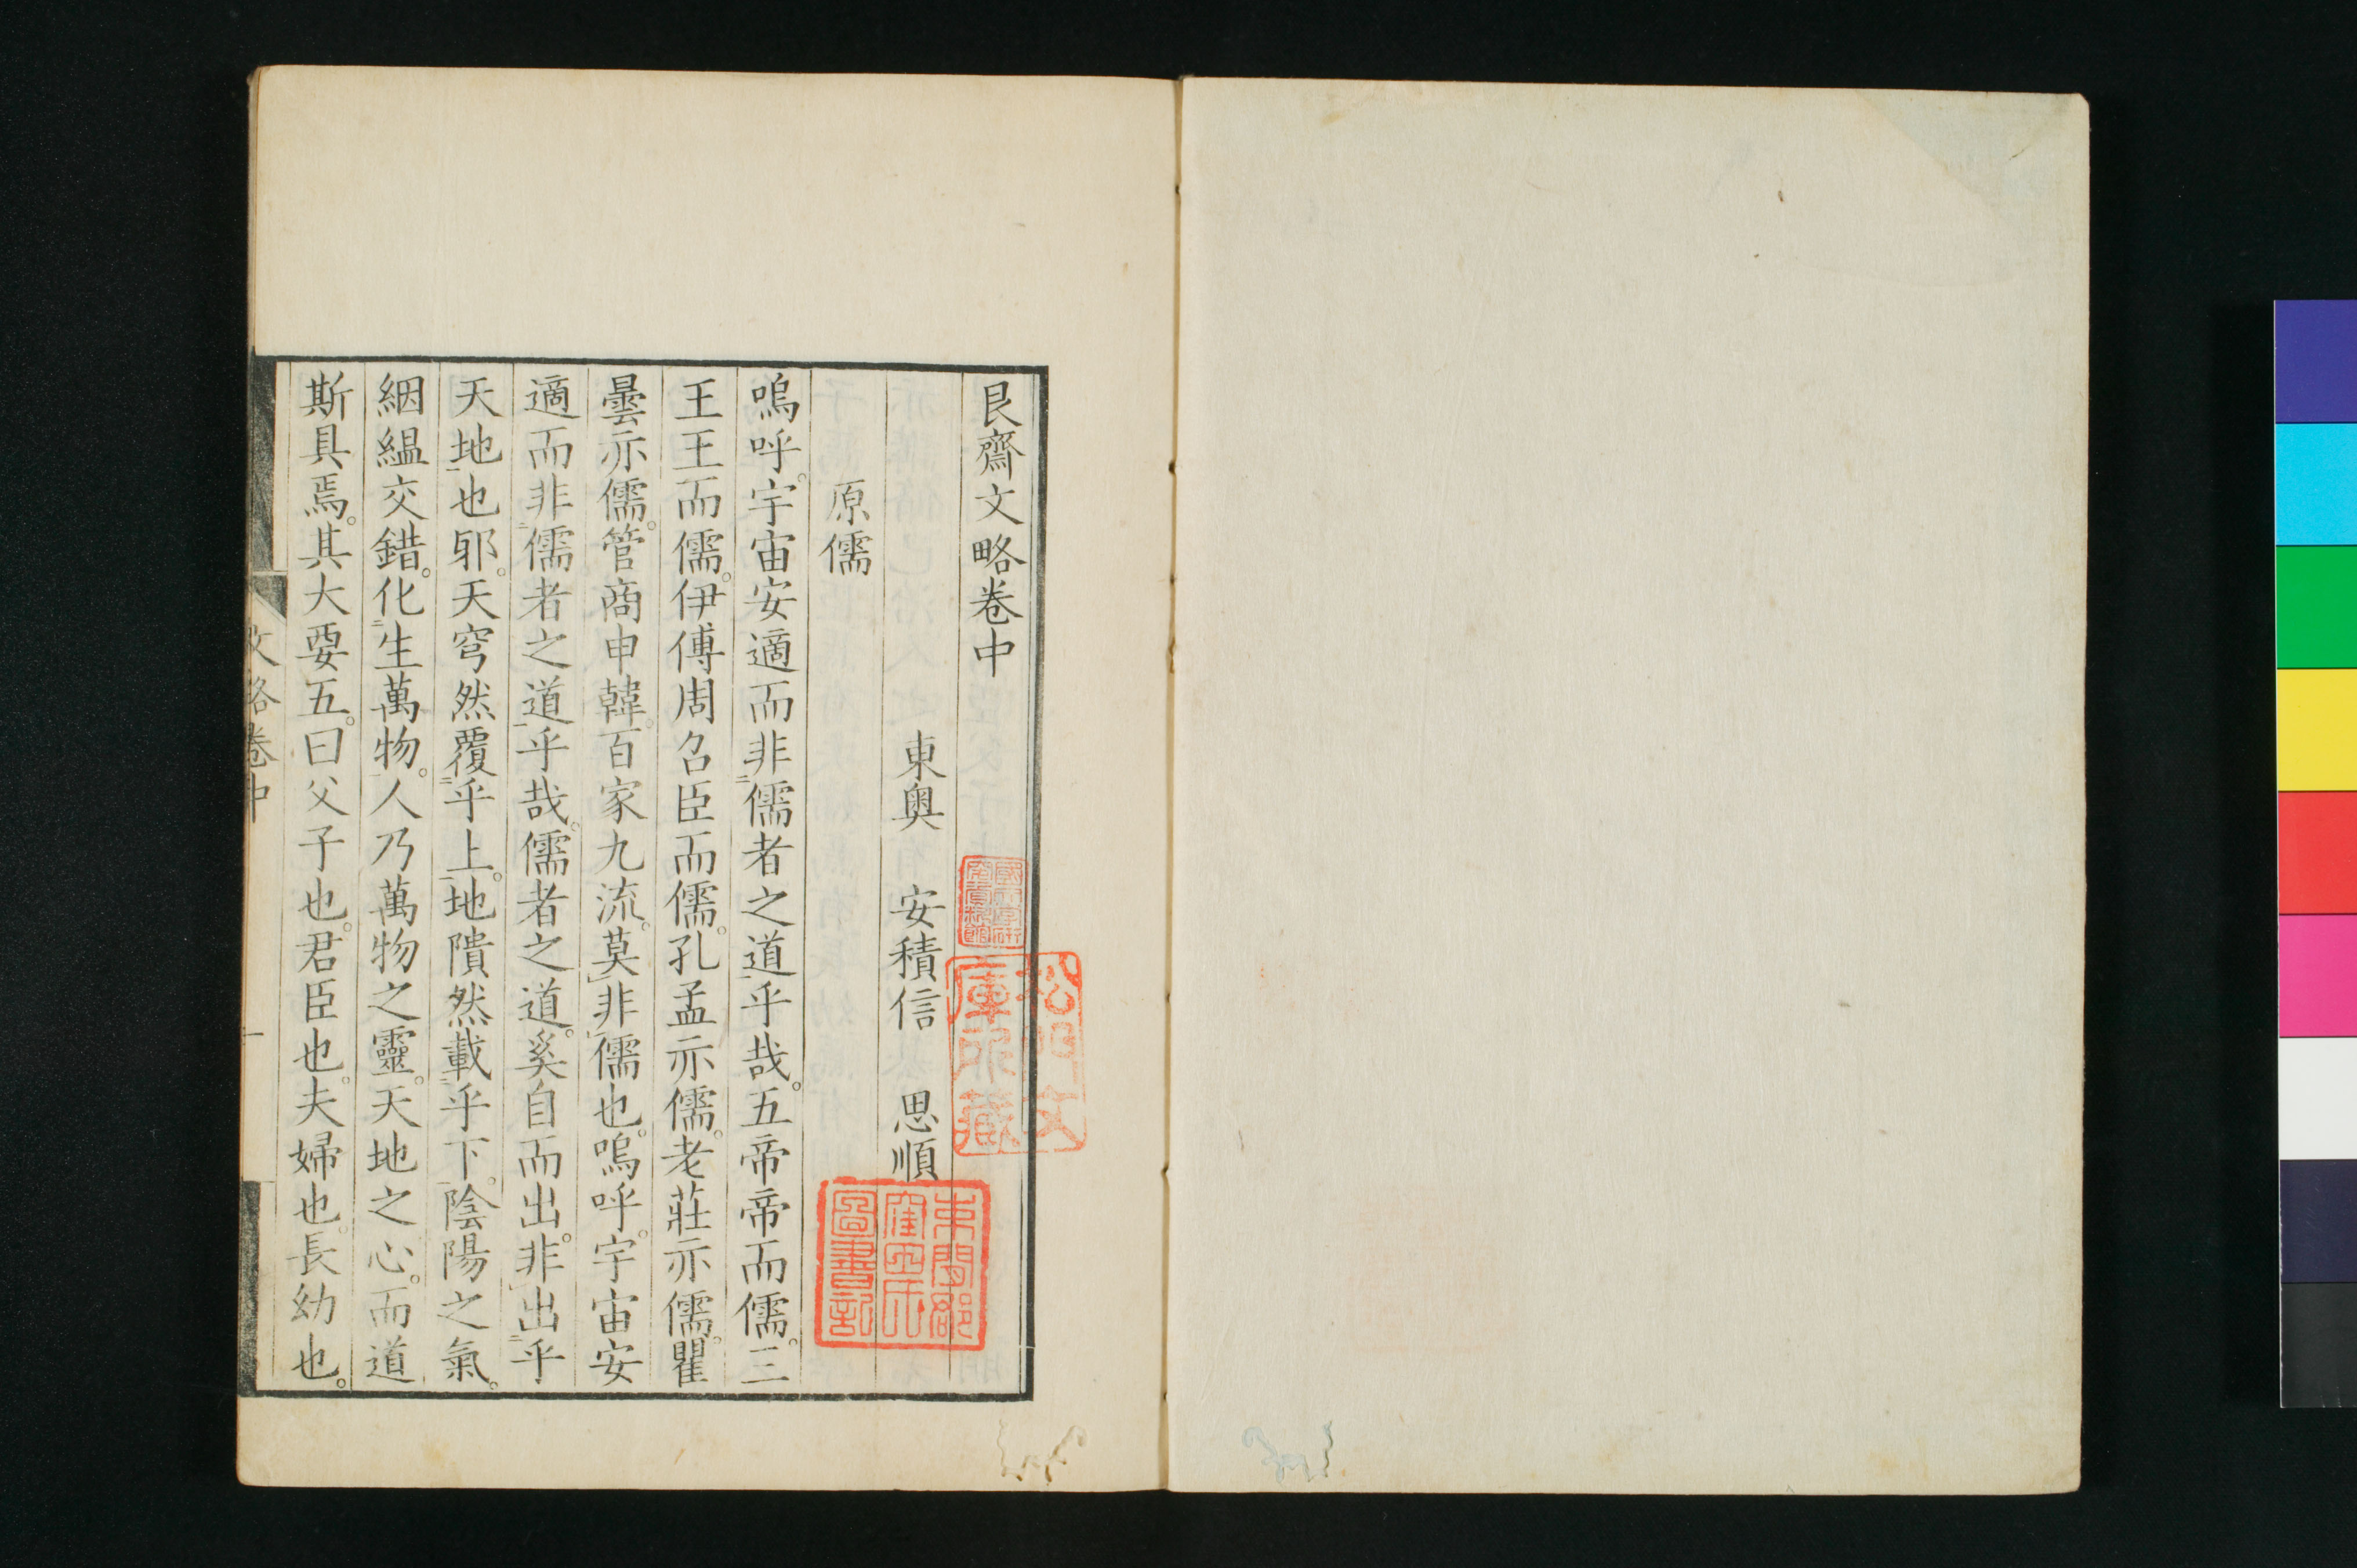 艮齋文略卷中
東奧　安積信　思順
原儒
嗚呼。宇宙安適而非儒者之道乎哉。五帝帝而儒。三
王王而儒。伊傅周召臣而儒。孔孟亦儒。老莊亦儒。瞿
曇亦儒。管商申韓。百家九流。莫非儒也。嗚呼。宇宙安
適而非儒者之道乎哉。儒者之道。奚自而出。非出乎
天地也邪。天穹然覆乎上。地隤然載乎下。陰陽之氣。
絪縕交錯。化生萬物。人乃萬物之靈。天地之心。而道
斯具焉。其大要五。曰父子也。君臣也。夫婦也。長幼也。
文略卷中
一
松門文
庫所藏
圖書記